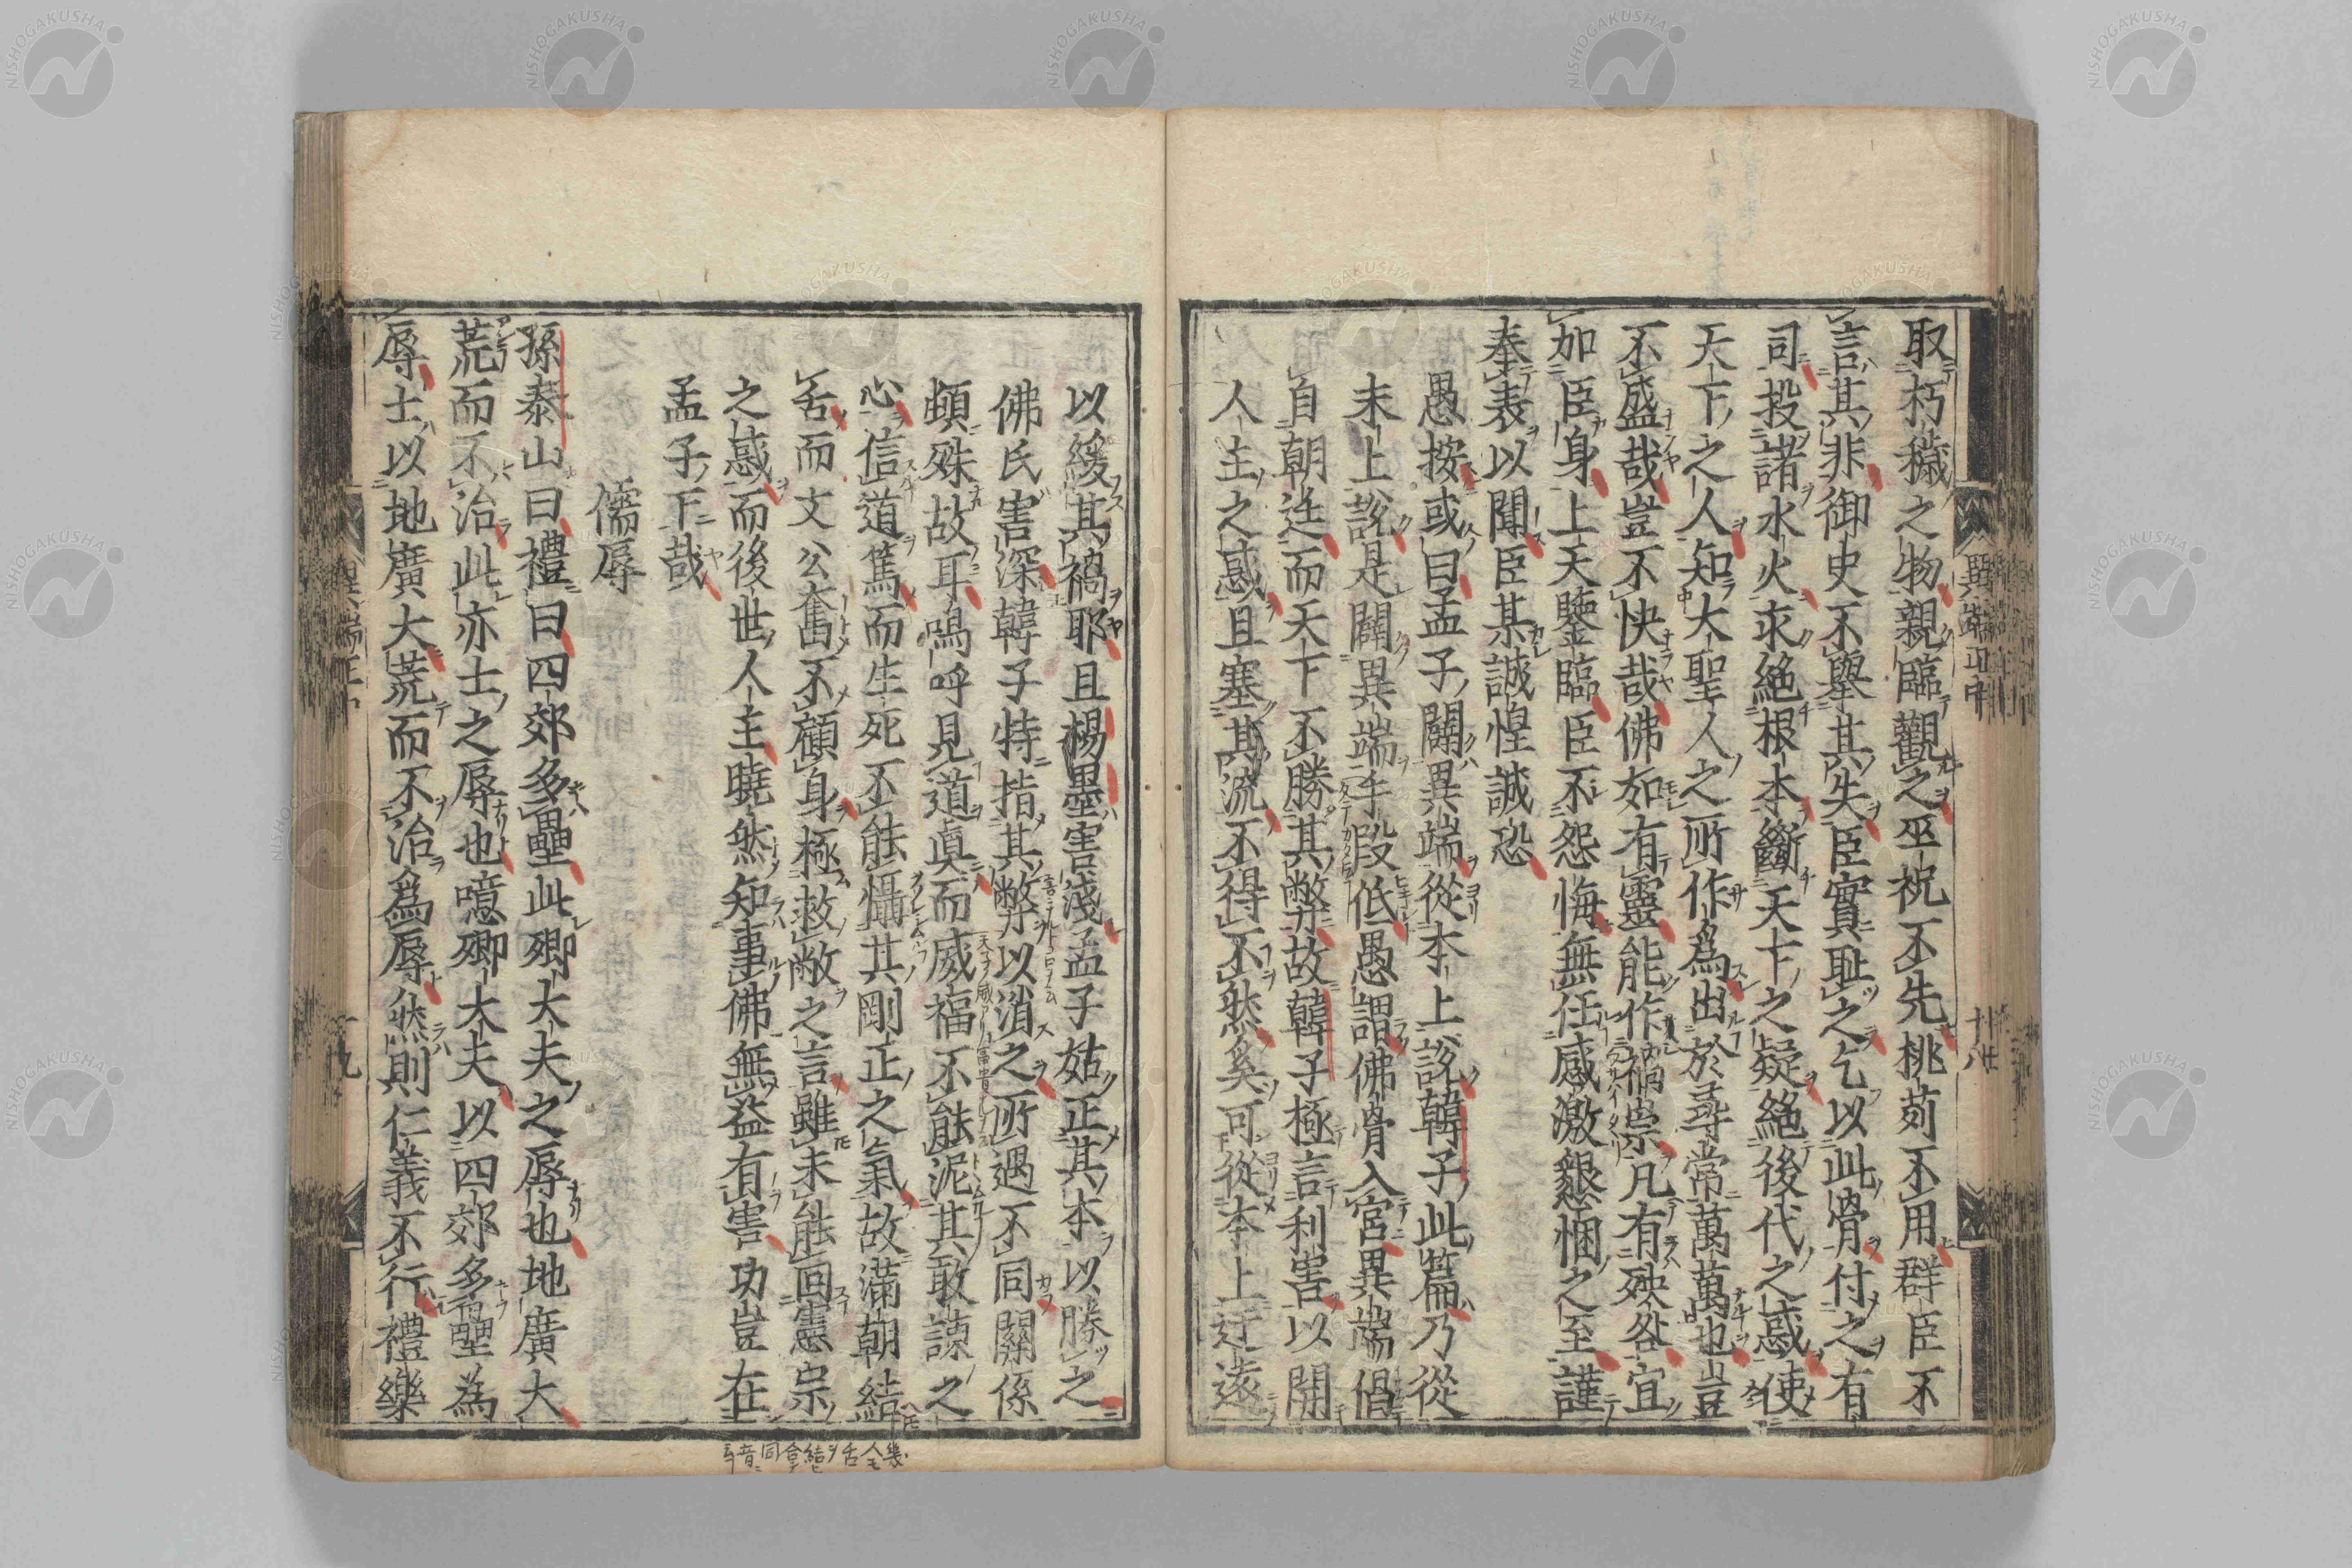 取朽穢之物親臨觀之巫祝不先桃茢不用群臣不
言其非御史不擧其失臣實耻之乞以此骨付之有
司投諸水火永絕根本斷天下之疑絕後代之惑使
天下之人知大聖人之所作爲出於尋常萬萬也豈
不盛哉豈不快哉佛如有靈能作禍祟凡有殃咎宜
加臣身上天鑒臨臣不怨悔無任感激懇悃之至謹
奉表以聞臣某誠惶誠恐
愚按或曰孟子闢異端從本上說韓子此篇乃從
末上說是闢異端手段低愚謂佛骨入宮異端倡
自朝廷而天下不勝其弊故韓子極言利害以開
人主之惑且塞其流不得不然奚可從本上迂遠
以緩其禍耶且楊墨害淺孟子姑正其本以勝之
佛氏害深韓子特指其弊以消之所遇不同關係
頓殊故耳嗚呼見道眞而威福不能泥其敢諫之
心信道篤而生死不能懾其剛正之氣故滿朝結
舌而文公奮不顧身極救敝之言雖未能回憲宗
之惑而後世人主曉然知事佛無益有害功豈在
孟子下哉
儒辱
孫泰山曰禮曰四郊多壘此卿大夫之辱也地廣大
荒而不治此亦士之辱也噫卿大夫以四郊多壘為
辱士以地廣大荒而不治爲辱然則仁義不行禮樂
異端正中
十八
十九